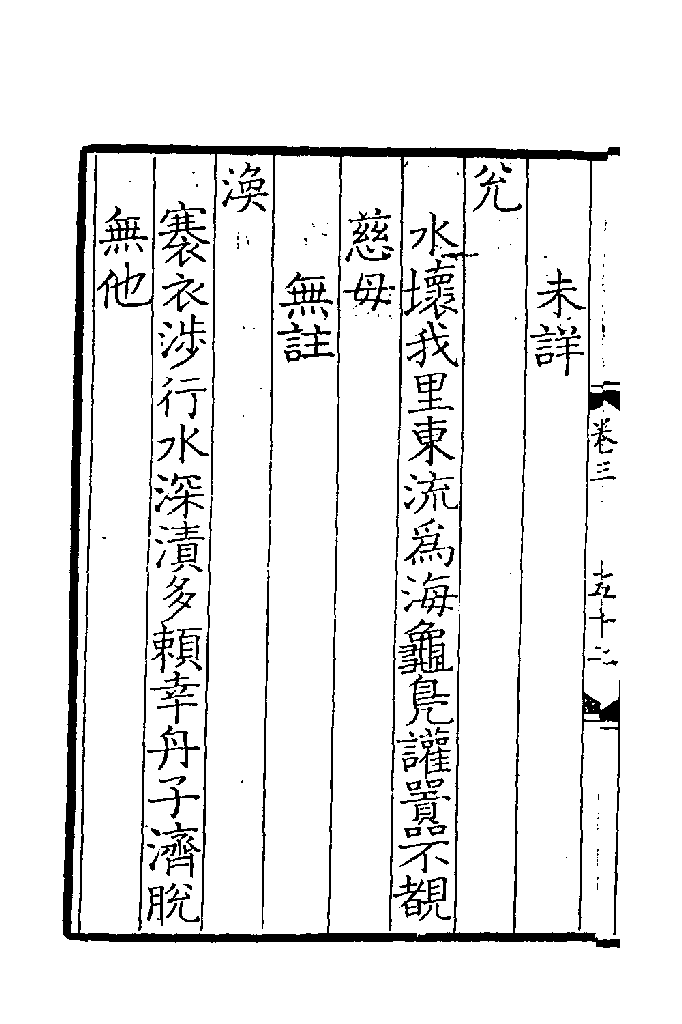 卷三
五十二
未詳
兊
水壞我里東流爲海龜鳬讙嚣不覩
慈母
無註
渙
褰衣涉行水深漬多頼幸舟子濟脫
無他